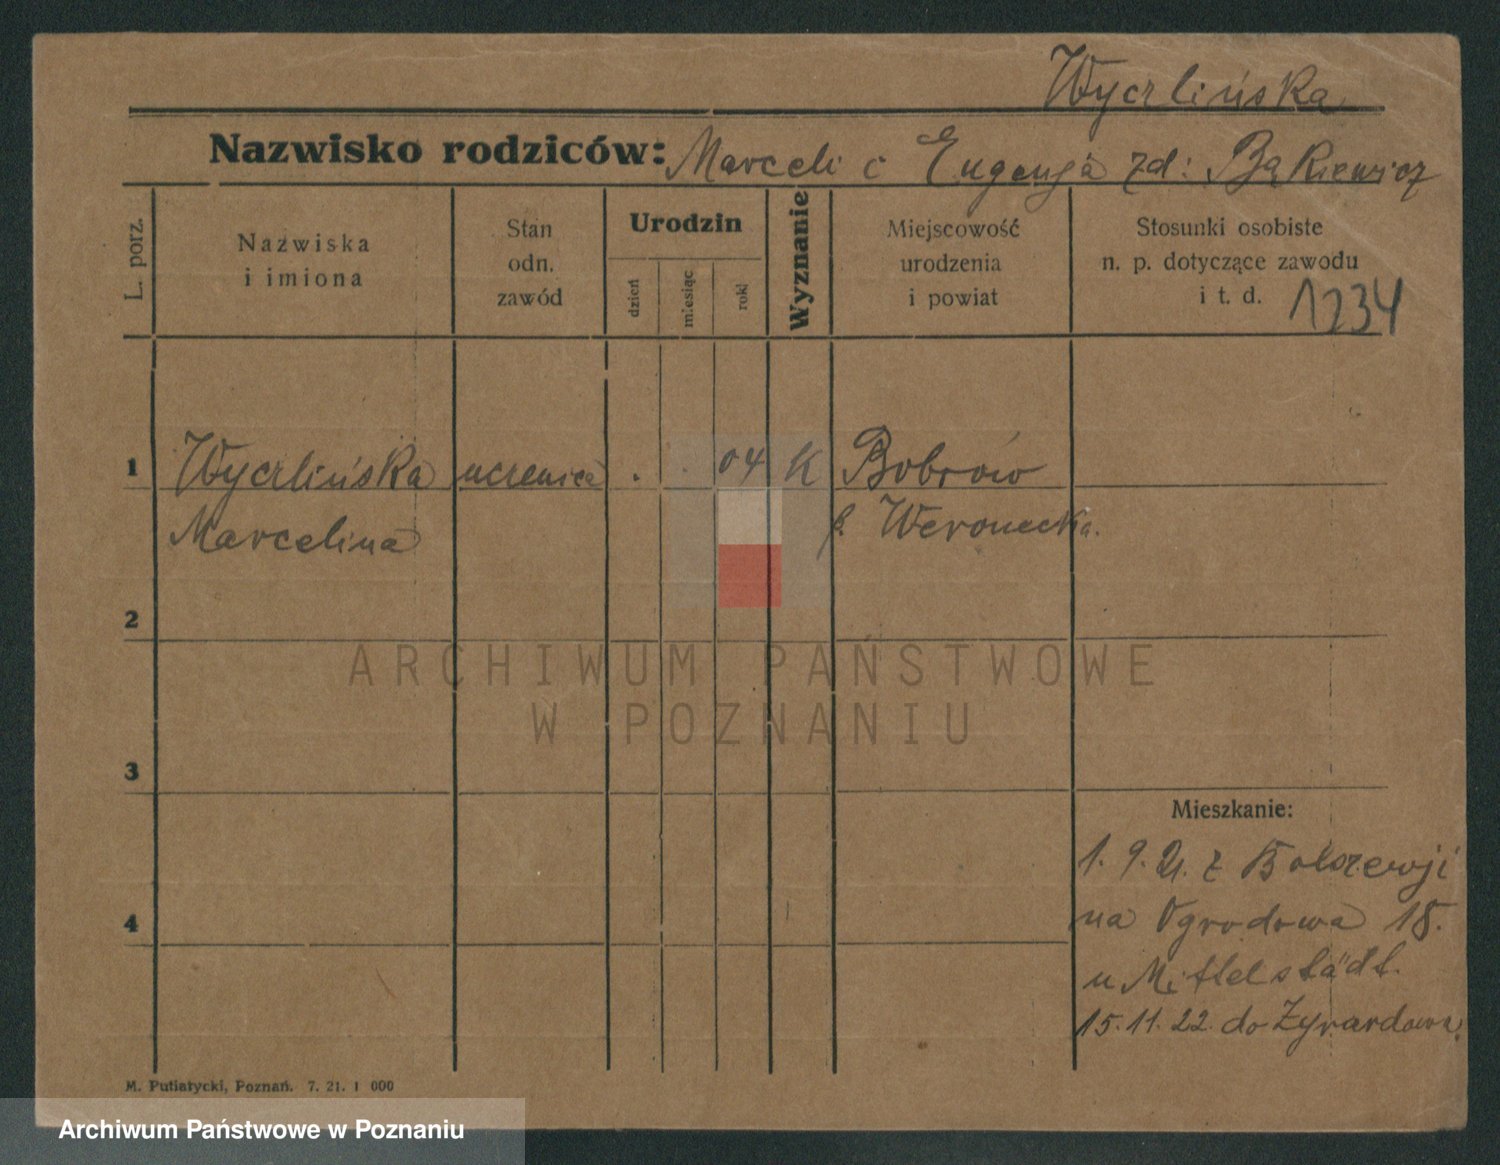 Wyczlińska
Nazwisko rodziców: Marceli i Eugenja zd: Bąkiewicz
L. porz.
Nazwiska
i imiona
Stan
odn.
zawód
Urodzin
dzień
miesiąc
rok
Wyznanie
Miejscowość
urodzenia
i powiat
Stosunki osobiste
n. p. dotyczące zawodu
i t. d.
1234
1 Wyczlińska uczenica . . 04 K Bobrów
Marcelina p. Weronecka.
2
3
Mieszkanie:
1. 9. 21. z Bolszewji
na Ogrodowa 18.
u Mittelstädt.
15. 11. 22. do Żyrardowa.
4
M. Putiatycki, Poznań. 7. 21. 1 000
ARCHIWUM PAŃSTWOWE
W POZNANIU
Archiwum Państwowe w Poznaniu